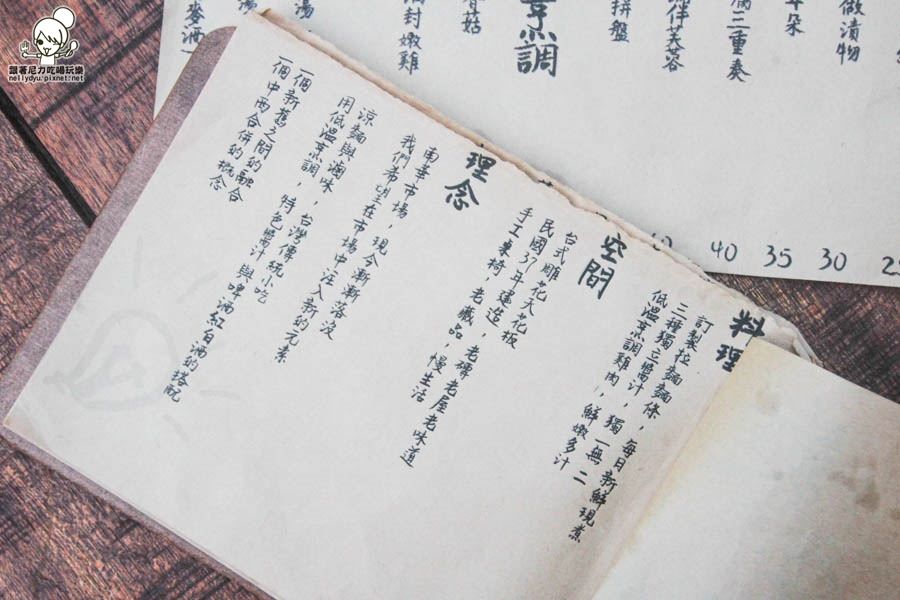 料理
訂製拉麵麵條,每日新鮮現煮
三種獨立醬汁,獨一無二
低溫烹調雞肉,鮮嫩多汁
空間
台式雕花天花板
民國37年建造,老磚老屋老味道
手工桌椅,老藏品,慢生活
理念
南華市場,現今漸漸落沒
我們希望在市場中注入新的元素
涼麵與滷味,台灣傳統小吃
用低溫烹調,特色醬汁與啤酒紅白酒的搭配
一個新舊之間的融合
一個中西合併的概念
做漬物
耳朵
三重奏
拼盤
烹調
封嫩雞
湯
40
35
30
跟著尼力吃喝玩樂
nellydyu.pixnet.net